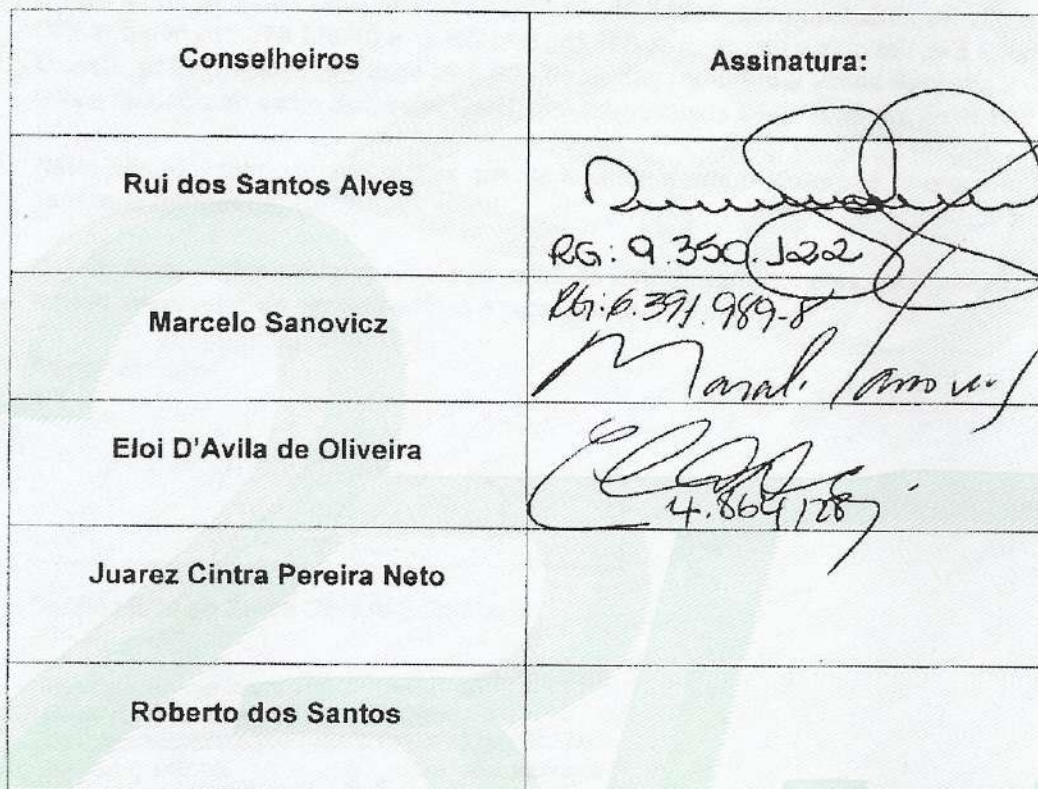 Conselheiros Assinatura:
Rui dos Santos Alves
RG: 9.350.122
Marcelo Sanovicz
RG: 6.391.989-8
Eloi D'Avila de Oliveira
4.864128
Juarez Cintra Pereira Neto
Roberto dos Santos